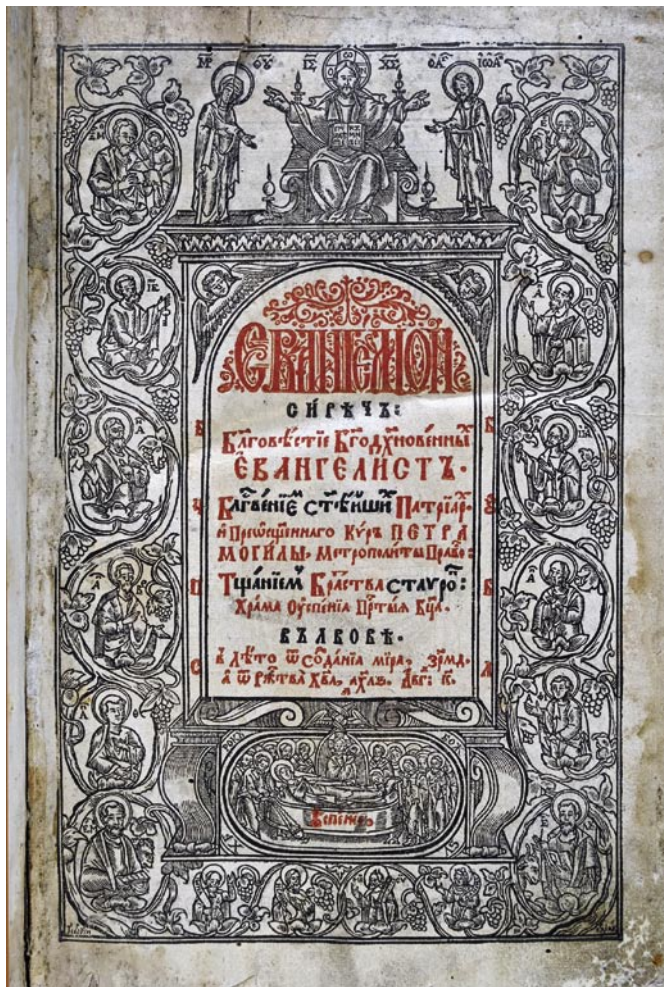 МР ѲУ ІС ХС
ЕВАНГЕЛІОН
СИРѢЧЬ:
Бл҃говѣстіе Бг҃одх҃новенны
ЕВАНГЕЛИСТЪ.
Бл҃гвеніе ст҃ѣйши Патріар.
и Преѡсщеннаго Кѵръ ПЕТРА
МОГИЛЫ, Метрополиты Право:
Тщаніем Братства Ставро:
Храма Оуспенія Прт҃ыя Бц҃а.
ВЪ ЛВОВѢ.
в лѣто ѿ созданія міра, ҂зрмд.
а ѿ Ржтва Хва, ҂ахлѕ. Авг: к.
Успеніе